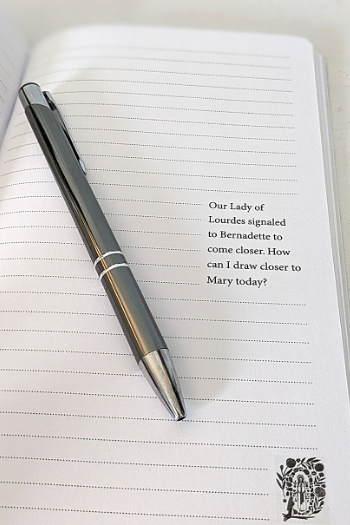 Our Lady of
Lourdes signaled
to Bernadette to
come closer. How
can I draw closer to
Mary today?